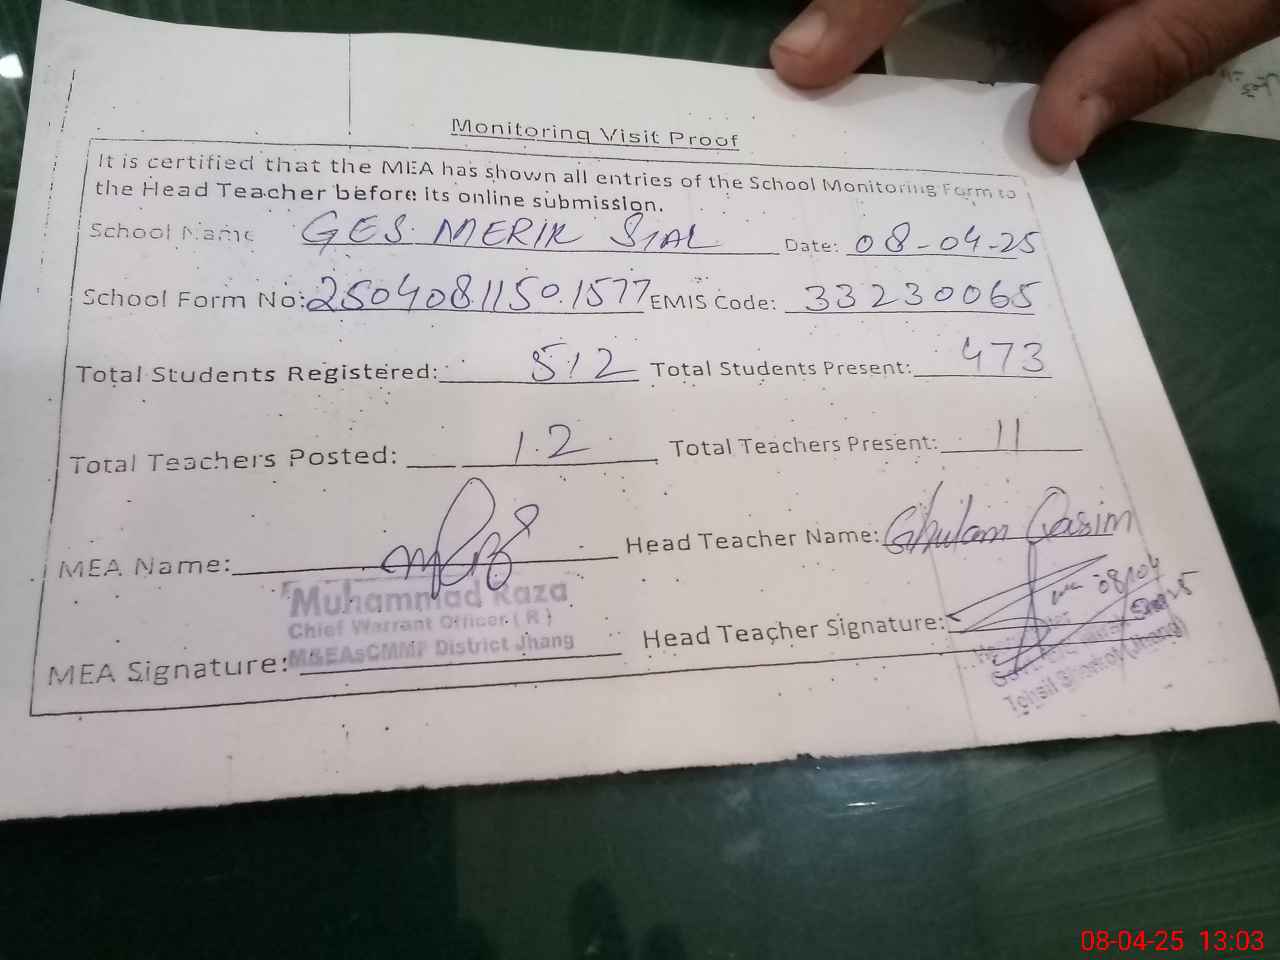 Monitoring Visit Proof
It is certified that the MEA has shown all entries of the School Monitoring Form to
the Head Teacher before its online submission.
School Name GES MERIK SIAL Date: 08-04-25
School Form No: 25040811501577 EMIS Code: 33230065
Total Students Registered: 512 Total Students Present: 473
Total Teachers Posted: 12 Total Teachers Present: 11
MEA Name: Head Teacher Name: Ghulam Qasim
Muhammad Raza
Chief Warrant Officer ( R )
M&EAsCMMF District Jhang
MEA Signature: Head Teacher Signature:
08-04-25 13:03